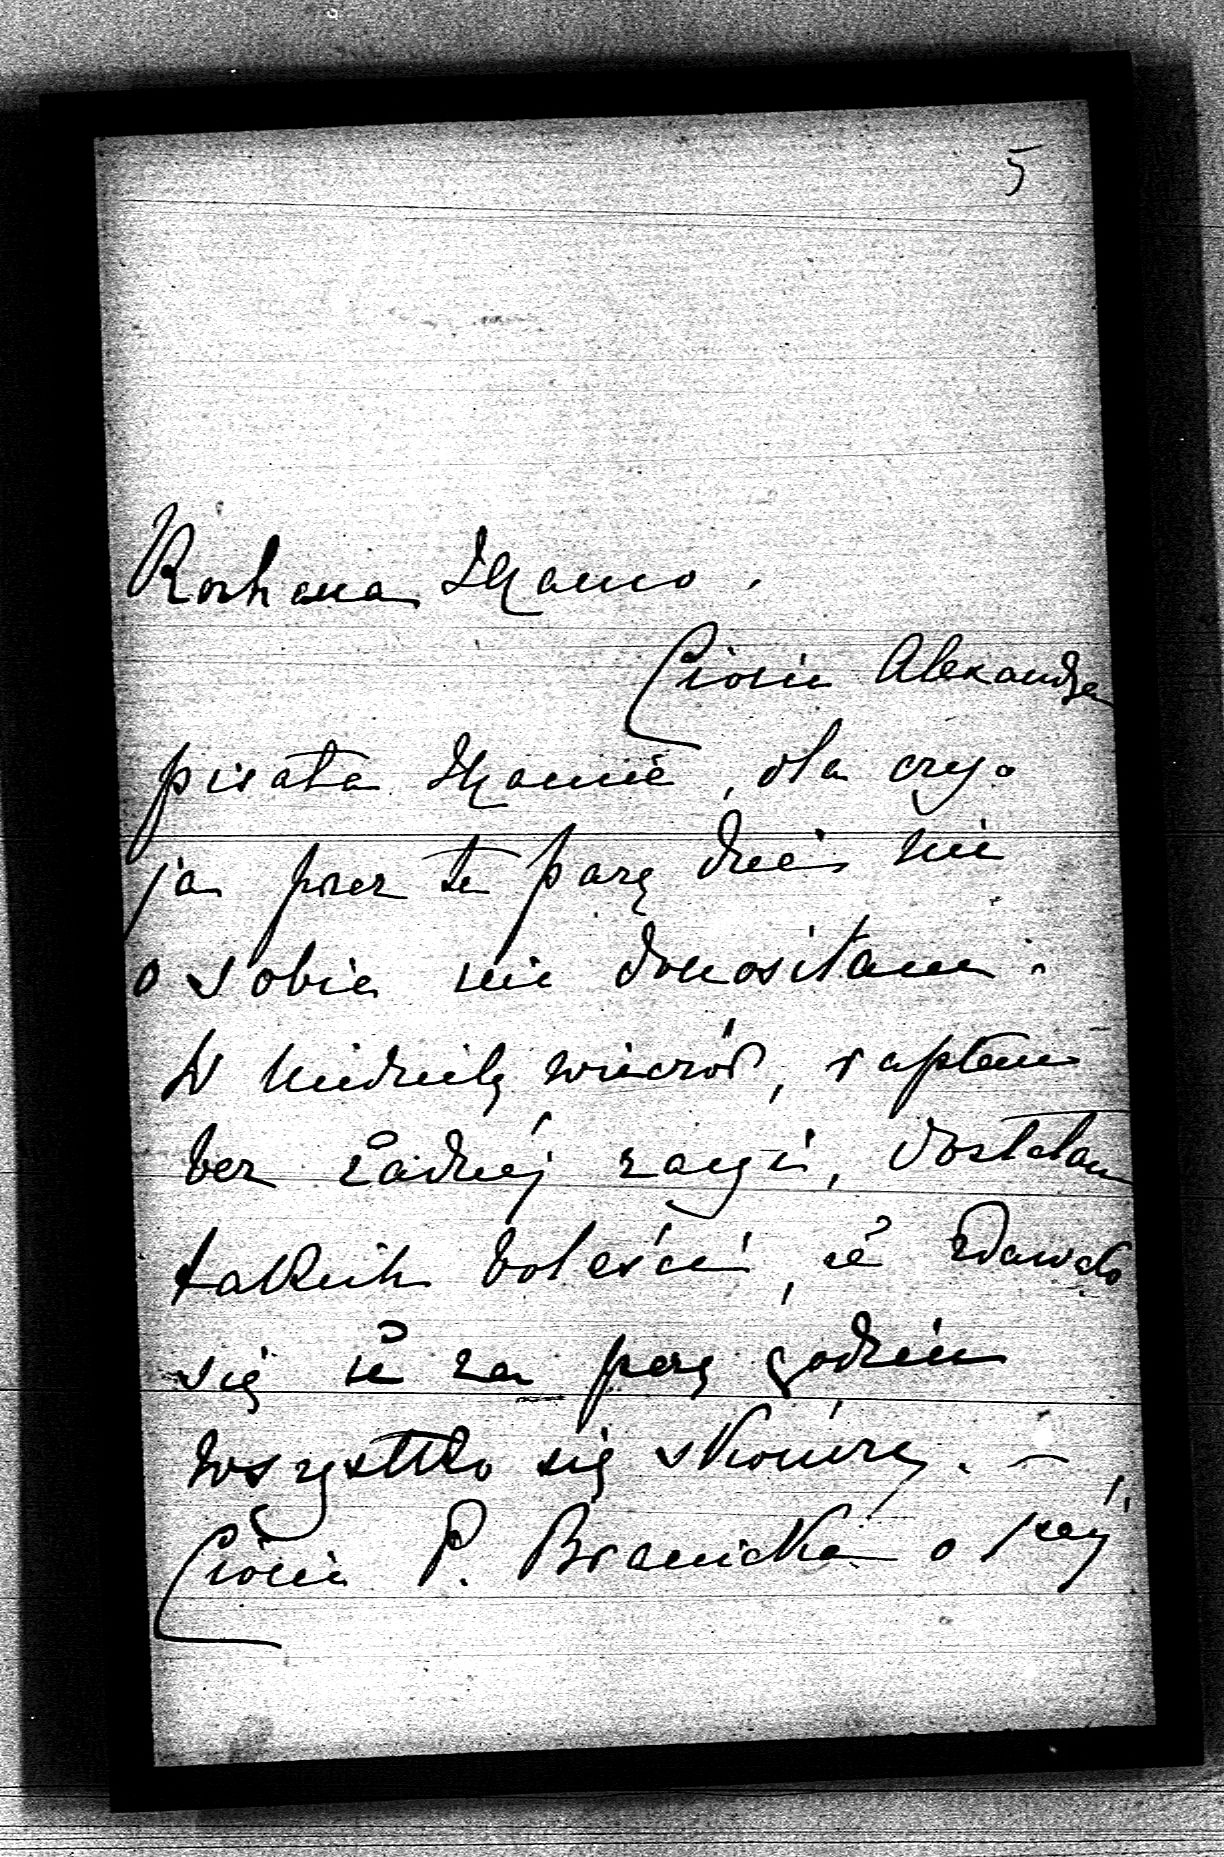 5
Kochana Mamo.
Ciocia Alexandra
pisała Mamie, dla czego
ja przez te parę dni nic
o sobie nie donosiłam.
W Niedzielę wieczór, raptem
bez żadnéj racyi, dostałam
takich boleści, że zdawało
się że za parę godzin
wszystko się skończy. —
Ciocia P. Branicka o